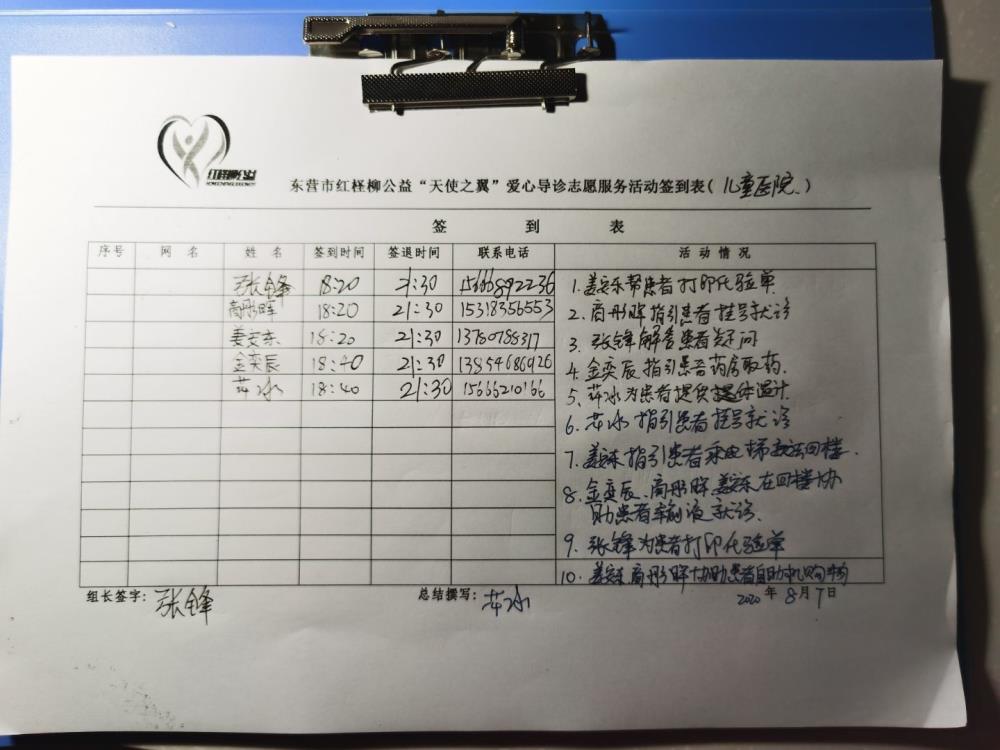 红柽柳公益
东营市红柽柳公益“天使之翼”爱心导诊志愿服务活动签到表(儿童医院.)
签 到 表
序号 网 名 姓 名 签到时间 签退时间 联系电话 活 动 情 况
张锋 18:20 21:30 15666892236
商彤晖 18:20 21:30 15318356553
姜安东 18:20 21:30 13780788317
金奕辰 18:40 21:30 13854686926
苹冰 18:40 21:30 15665210166
1. 姜安东帮患者打印化验单
2. 商彤晖指引患者挂号就诊
3. 张锋解答患者疑问
4. 金奕辰指引患者药房取药.
5. 苹冰为患者提供体温计.
6. 苹冰指引患者挂号就诊
7. 姜安东指引患者乘电梯去四楼.
8. 金奕辰、商彤晖、姜安东在四楼协
助患者输液就诊.
9. 张锋为患者打印化验单
10. 姜安东 商彤晖协助患者自助机购物
组长签字: 张锋 总结撰写: 苹冰 2020年8月7日